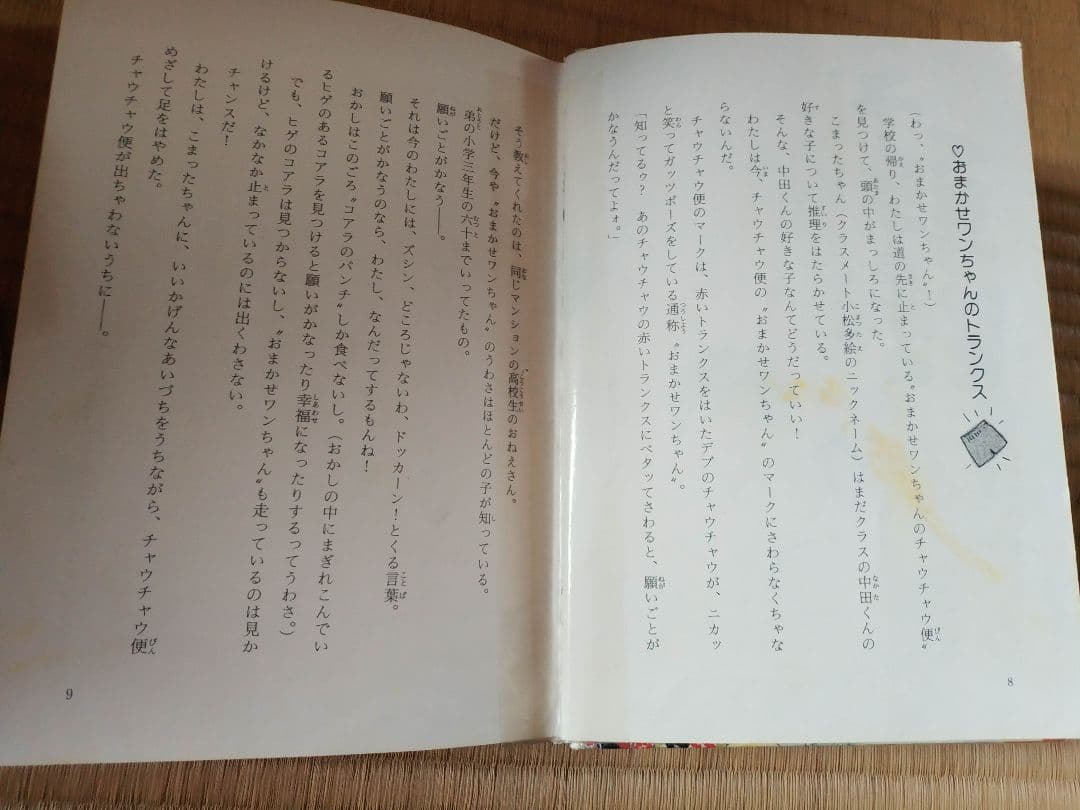 ♡おまかせワンちゃんのトランクス
（わっ、〝おまかせワンちゃん〟！）
学校の帰り、わたしは道の先に止まっている〝おまかせワンちゃんのチャウチャウ便〟
を見つけて、頭の中がまっしろになった。
こまったちゃん（クラスメート小松多絵のニックネーム）はまだクラスの中田くんの
好きな子について推理をはたらかせている。
そんな、中田くんの好きな子なんてどうだっていい！
わたしは今、チャウチャウ便の〝おまかせワンちゃん〟のマークにさわらなくちゃな
らないんだ。
チャウチャウ便のマークは、赤いトランクスをはいたデブのチャウチャウが、ニカッ
と笑ってガッツポーズをしている通称〝おまかせワンちゃん〟。
「知ってるゥ？　あのチャウチャウの赤いトランクスにペタッてさわると、願いごとが
かなうんだってよォ。」
8
そう教えてくれたのは、同じマンションの高校生のおねえさん。
だけど、今や〝おまかせワンちゃん〟のうわさはほとんどの子が知っている。
弟の小学三年生の六十までいってたもの。
願いごとがかなう――。
それは今のわたしには、ズシン、どころじゃないわ、ドッカーン！とくる言葉。
願いごとがかなうのなら、わたし、なんだってするもんね！
おかしはこのごろ〝コアラのパンチ〟しか食べないし。（おかしの中にまぎれこんでい
るヒゲのあるコアラを見つけると願いがかなったり幸福になったりするってうわさ。）
でも、ヒゲのコアラは見つからないし、〝おまかせワンちゃん〟も走っているのは見か
けるけど、なかなか止まっているのには出くわさない。
チャンスだ！
わたしは、こまったちゃんに、いいかげんなあいづちをうちながら、チャウチャウ便
めざして足をはやめた。
チャウチャウ便が出ちゃわないうちに――。
9